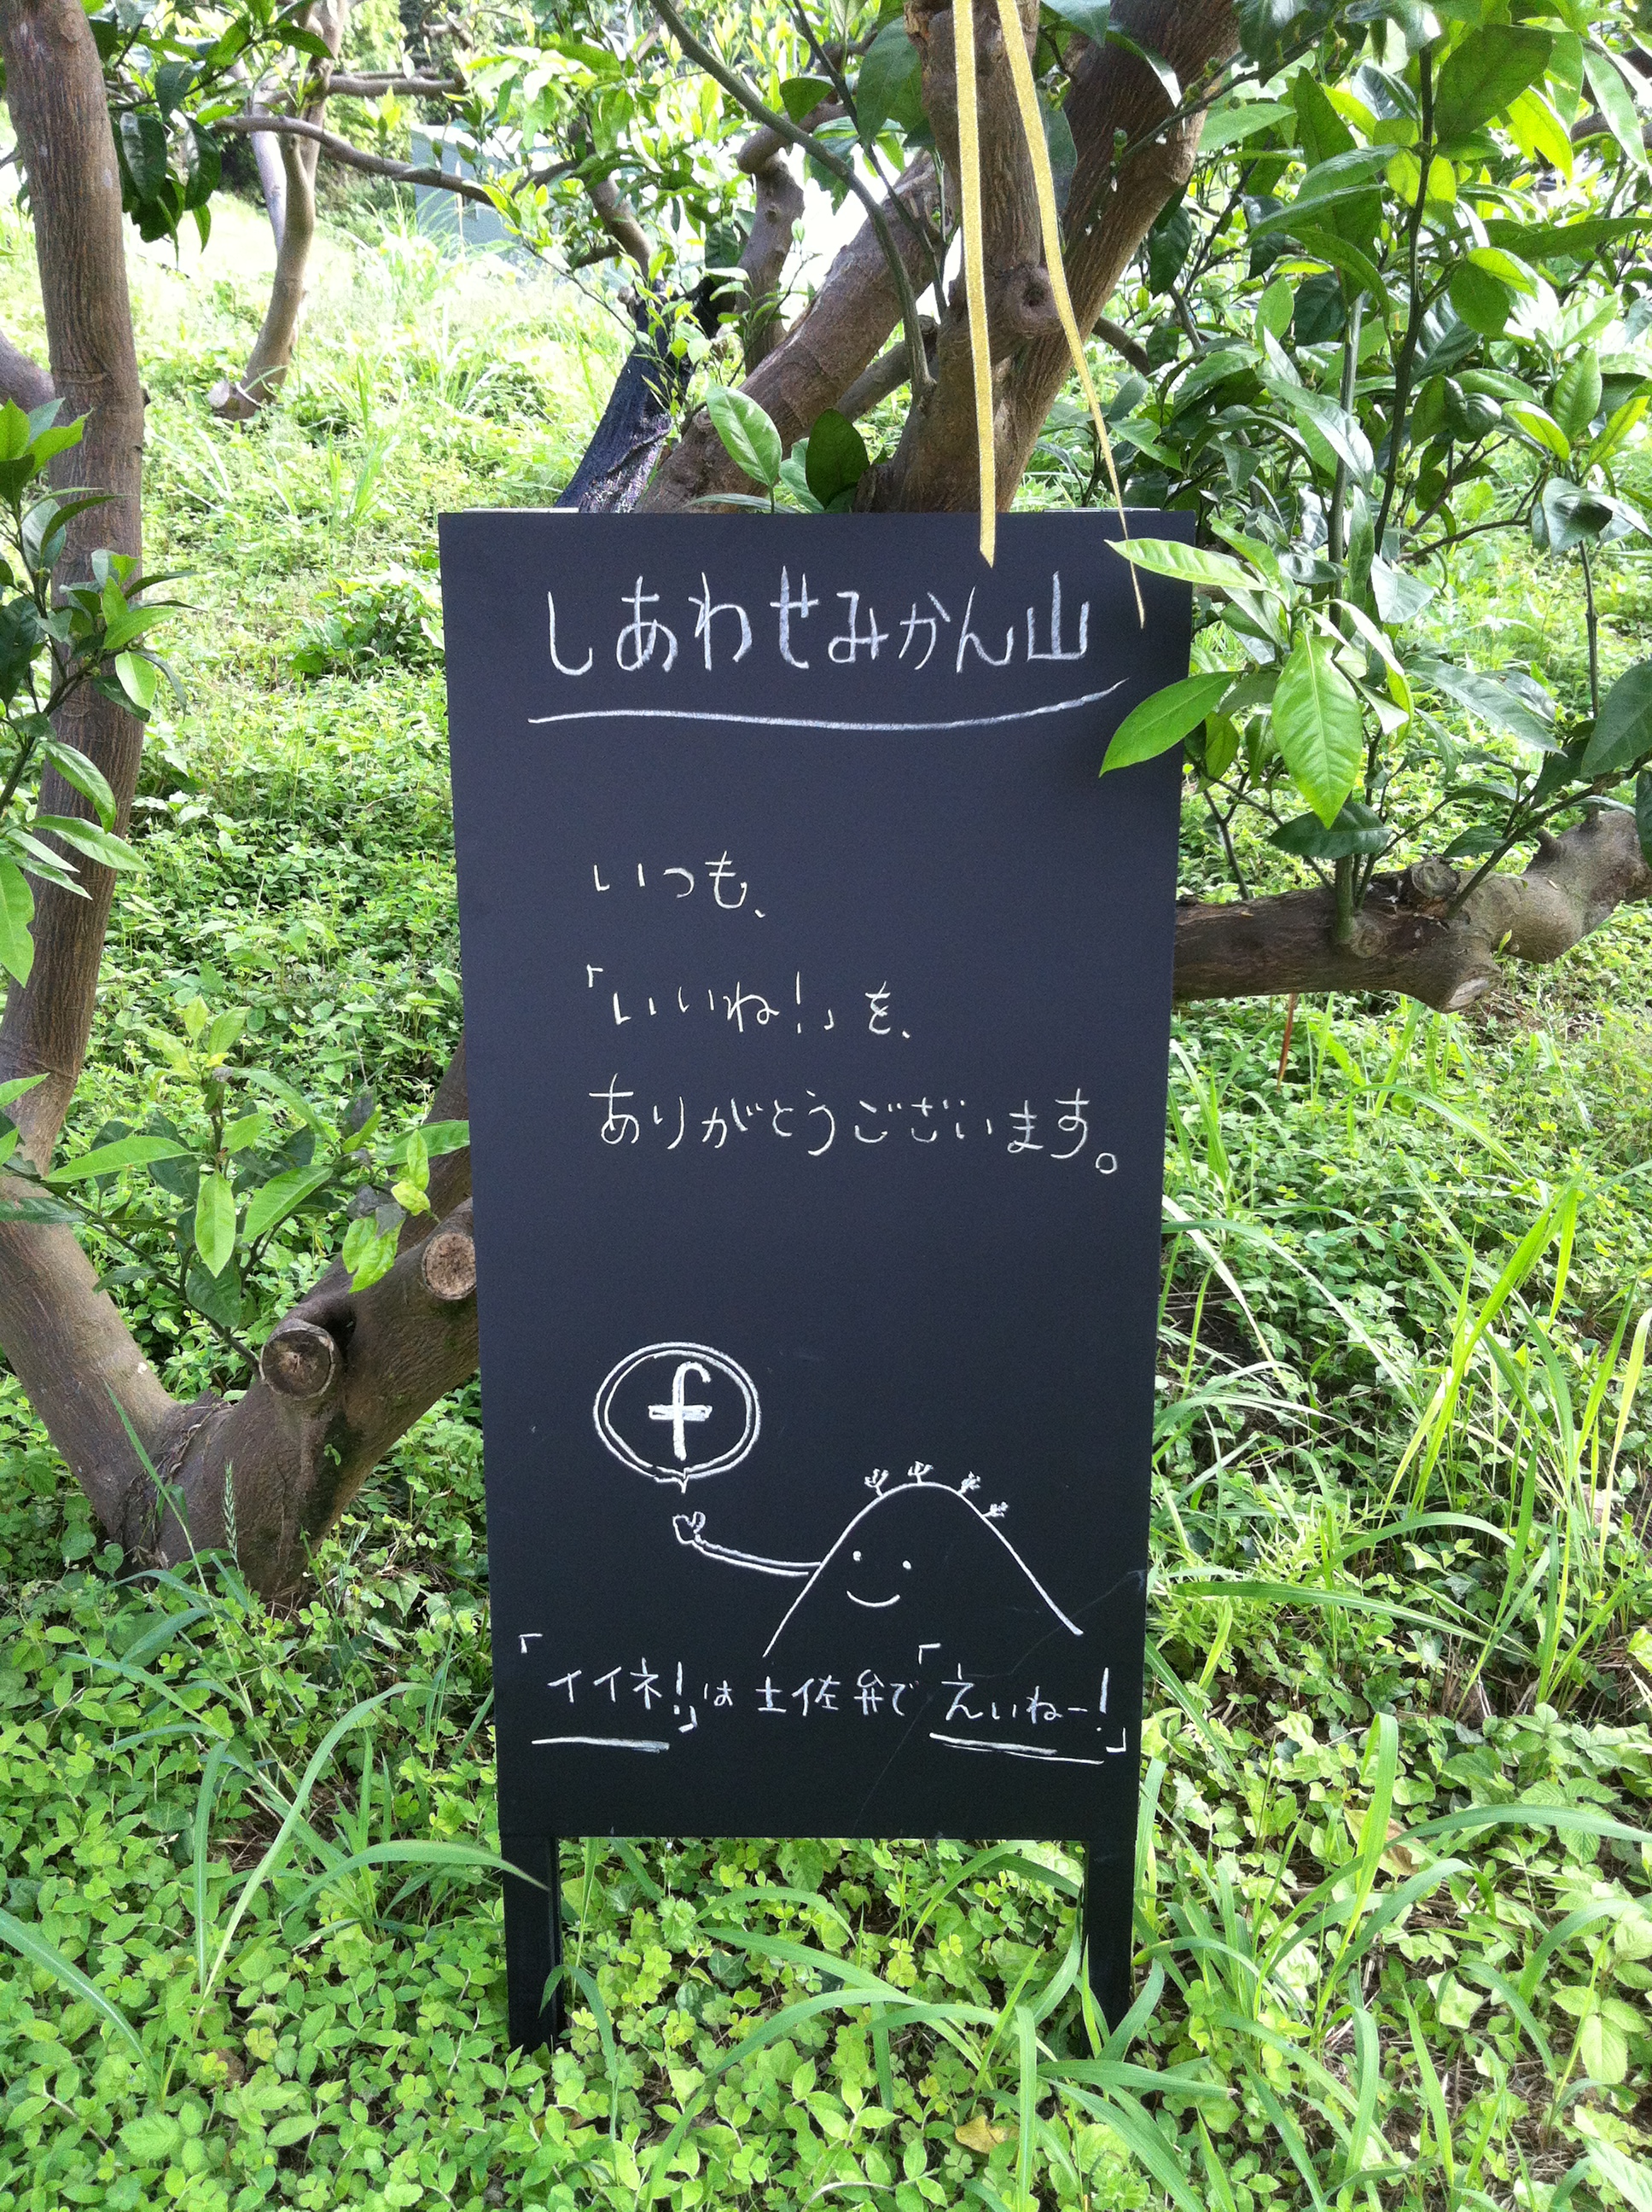 しあわせみかん山
いつも、
「いいね!」を、
ありがとうございます。
f
「イイネ!」は土佐弁で「えいねー!」